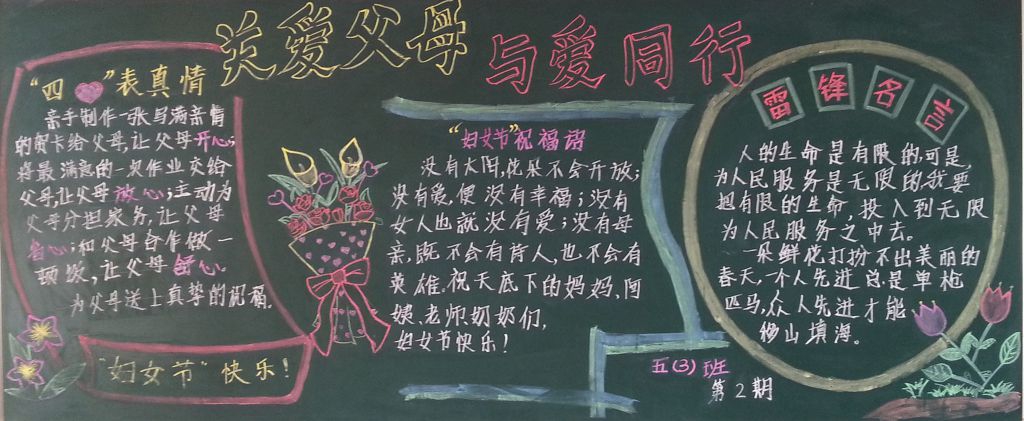 关爱父母
与爱同行
"四 表真情
亲手制作一张写满亲情
的贺卡给父母,让父母开心;
将最满意的一次作业交给
父母,让父母放心;主动为
父母分担家务,让父母
省心;和父母合作做一
顿饭,让父母舒心。
为父母送上真挚的祝福.
"妇女节"快乐!
"妇女节"祝福语
没有太阳,花朵不会开放;
没有爱,便没有幸福;没有
女人也就没有爱;没有母
亲,既不会有诗人,也不会有
英雄.祝天底下的妈妈,阿
姨,老师奶奶们,
妇女节快乐!
五(3)班
第2期
雷锋名言
人的生命是有限的,可是,
为人民服务是无限的,我要
把有限的生命,投入到无限
为人民服务之中去。
一朵鲜花打扮不出美丽的
春天,一个人先进总是单枪
匹马,众人先进才能
移山填海。